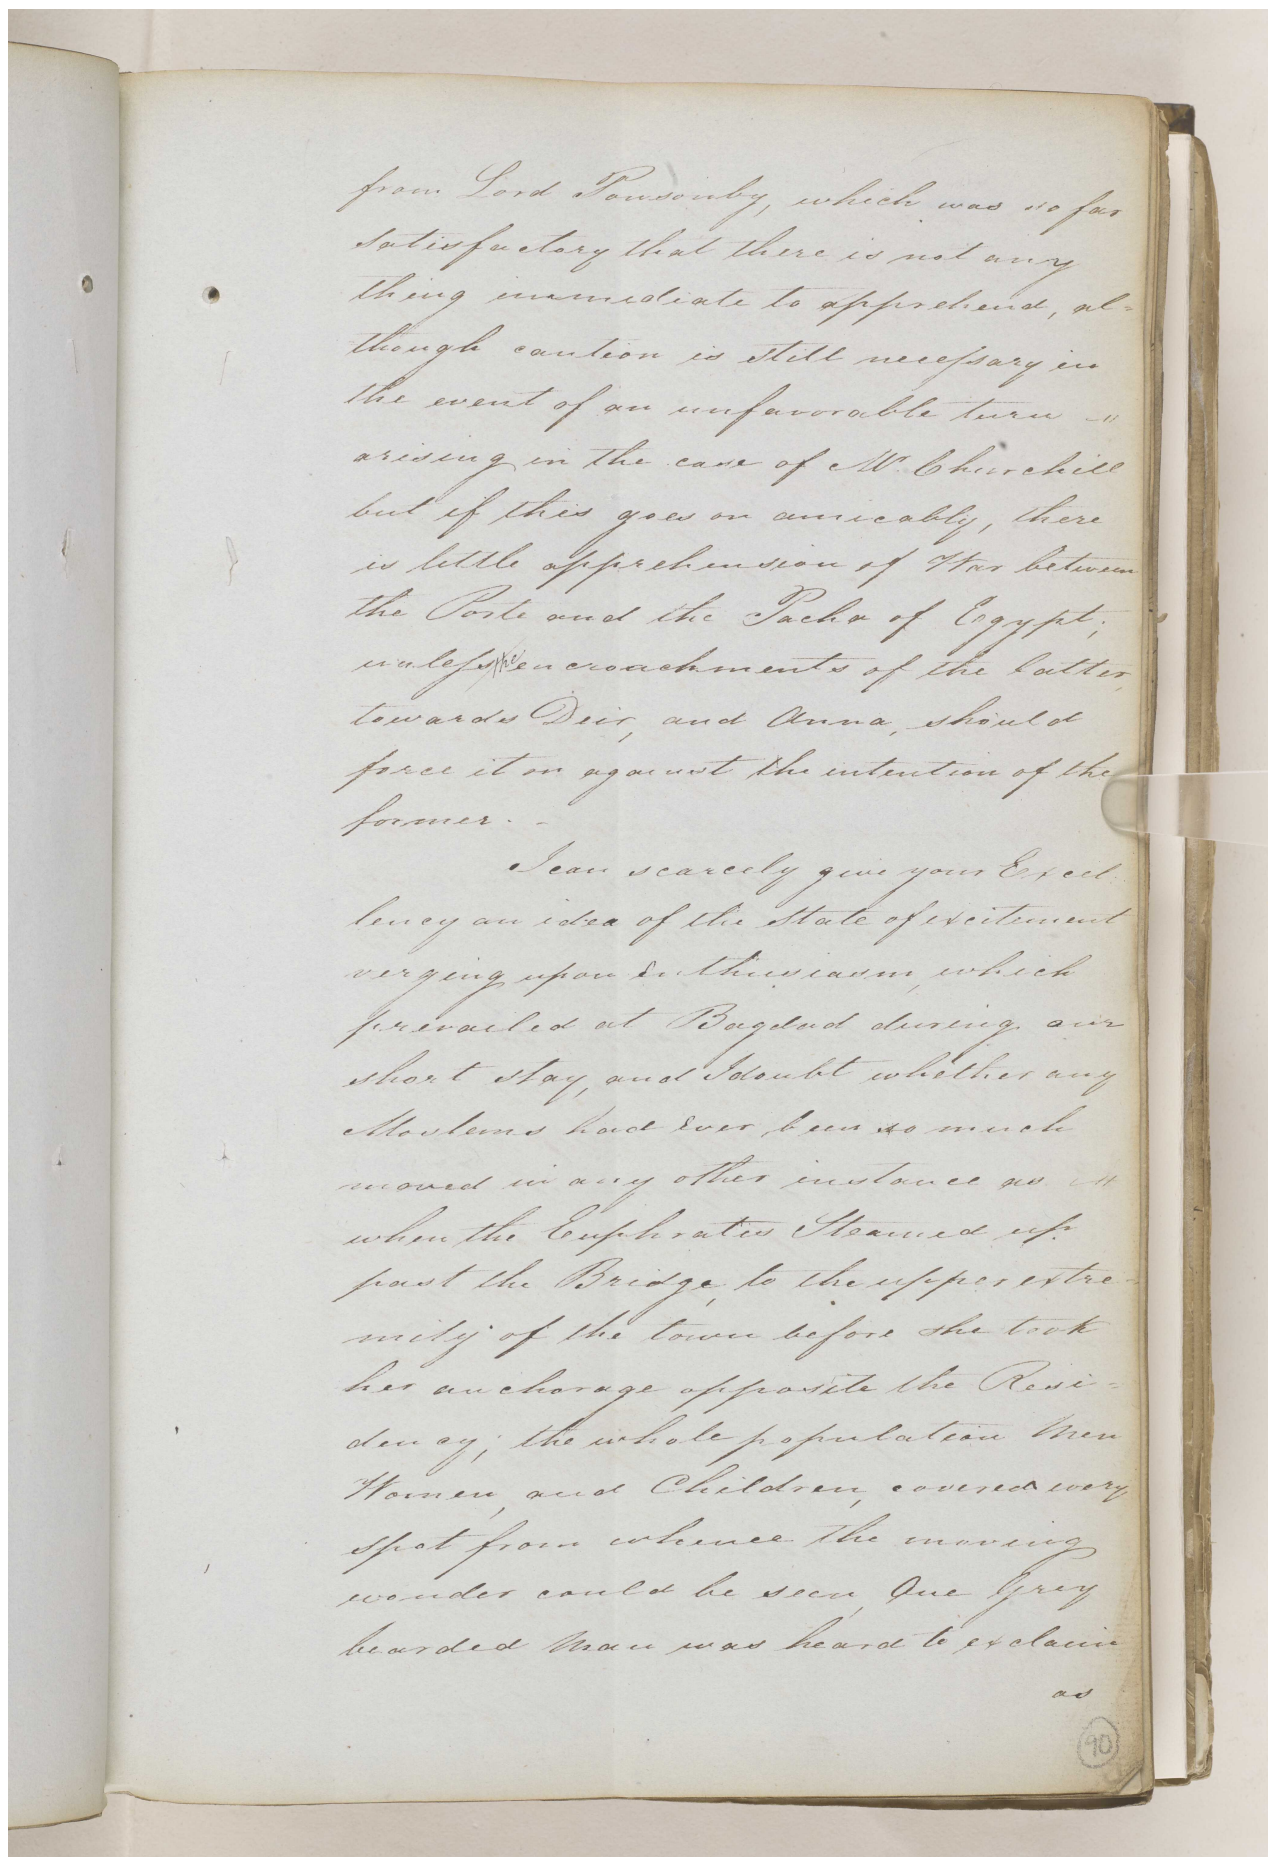 from Lord Ponsonby, which was so far
satisfactory that there is not any
thing immediate to apprehend, al=
though caution is still necessary in
the event of an unfavorable turn
arising in the case of Mr. Churchill
but if this goes on amicably, there
is little apprehension of War between
the Porte and the Pacha of Egypt;
unless the encroachments of the latter,
towards Deir, and Anna, should
force it on against the intention of the
former. -
I can scarcely give your Excel
lency an idea of the state of excitement
verging upon Enthusiasm, which
prevailed at Bagdad during our
short stay, and I doubt whether any
Moslems had Ever been so much
moved in any other instance as
when the Euphrates Steamed up
past the Bridge, to the upper extre-
mity of the town before she took
her anchorage opposite the Resi=
dency; the whole population Men
Women, and Children, covered every
spot from whence the moving
wonder could be seen, One Grey
bearded Man was heard to exclaim
as
90